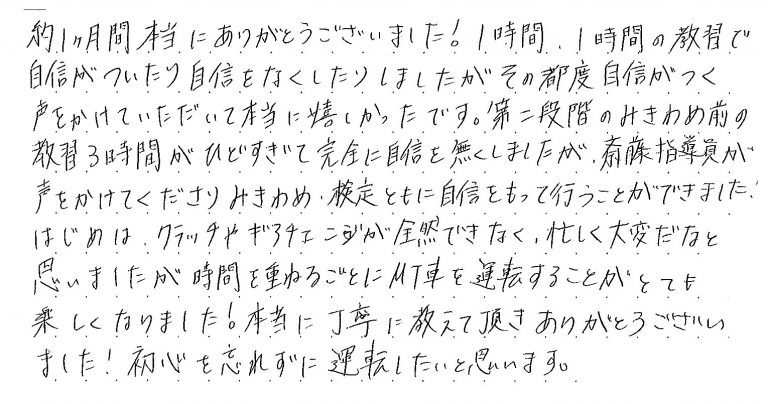 約1ヶ月間本当にありがとうございました!1時間、1時間の教習で
自信がついたり自信をなくしたりしましたがその都度自信がつく
声をかけていただいて本当に嬉しかったです。第二段階のみきわめ前の
教習3時間がひどすぎて完全に自信を無くしましたが、斎藤指導員が
声をかけてくださりみきわめ・検定ともに自信をもって行うことができました!
はじめは、クラッチやギアチェンジが全然できなく、忙しく大変だなと
思いましたが時間を重ねるごとにMT車を運転することがとても
楽しくなりました!本当に丁寧に教えて頂きありがとうござい
ました!初心を忘れずに運転したいと思います。